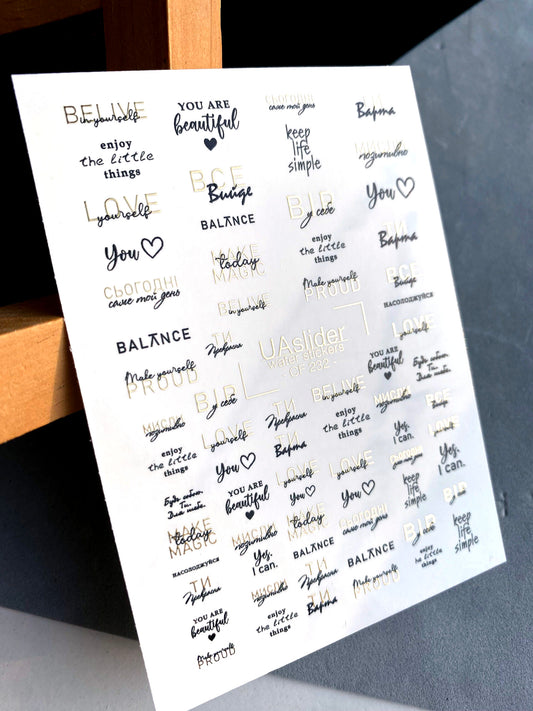 BELIVE
in yourself
YOU ARE
beautiful
СЬОГОДНІ
саме той день
ТИ
Варта
enjoy
the little
things
keep
life
simple
МИСЛИ
позитивно
LOVE
yourself
ВСЕ
Вийде
ВІР
у себе
You
BALANCE
You
MAKE
today
MAGIC
enjoy
the little
things
ТИ
Варта
СЬОГОДНІ
саме той день
BELIVE
in yourself
Make yourself
PROUD
ВСЕ
Вийде
НАСОЛОДЖУЙСЯ
BALANCE
ТИ
Прекрасна
UAslider
water stickers
- CF 232 -
LOVE
yourself
Make yourself
PROUD
ВІР
у себе
BELIVE
in yourself
YOU ARE
beautiful
Будь собою.
Ти.
Для тебе.
МИСЛИ
позитивно
LOVE
yourself
ТИ
Прекрасна
enjoy
the little
things
МИСЛИ
позитивно
ВСЕ
Вийде
enjoy
the little
things
You
ТИ
Варта
Yes,
I can.
LOVE
yourself
Будь собою.
Ти.
Для тебе.
YOU ARE
beautiful
LOVE
yourself
LOVE
yourself
СЬОГОДНІ
саме той день
Yes,
I can.
You
You
keep
life
simple
ВІР
у себе
MAKE
today
MAGIC
МИСЛИ
позитивно
MAKE
today
MAGIC
СЬОГОДНІ
саме той день
ВІР
у себе
keep
life
simple
НАСОЛОДЖУЙСЯ
Yes,
I can.
BALANCE
BALANCE
enjoy
the little
things
ТИ
Прекрасна
МИСЛИ
позитивно
ТИ
Прекрасна
Make yourself
PROUD
YOU ARE
beautiful
enjoy
the little
things
ТИ
Варта
Make yourself
PROUD